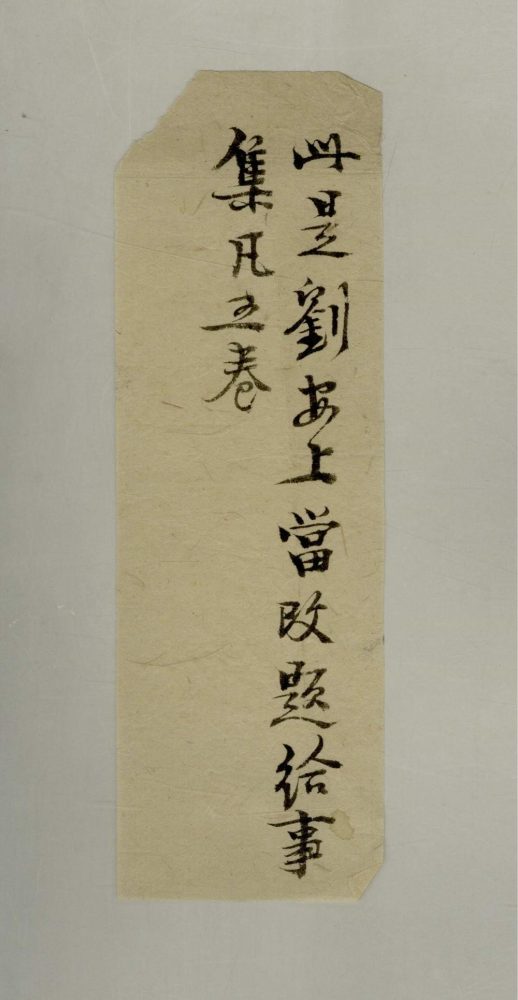 此是劉安上當改題給事
集凡五卷